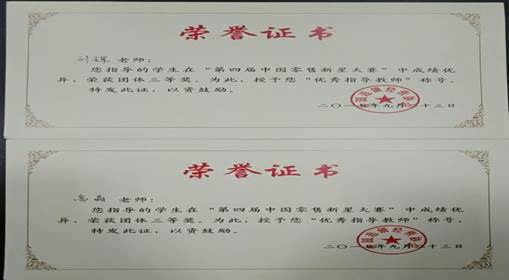 荣誉证书
刘辉 老师:
您指导的学生在“第四届中国零售新星大赛”中成绩优
异,荣获团体三等奖。为此,授予您“优秀指导教师”称号。
特发此证,以资鼓励。
年九月二十三日
荣誉证书
高晶 老师:
您指导的学生在“第四届中国零售新星大赛”中成绩优
异,荣获团体三等奖。为此,授予您“优秀指导教师”称号。
特发此证,以资鼓励。
年九月二十三日